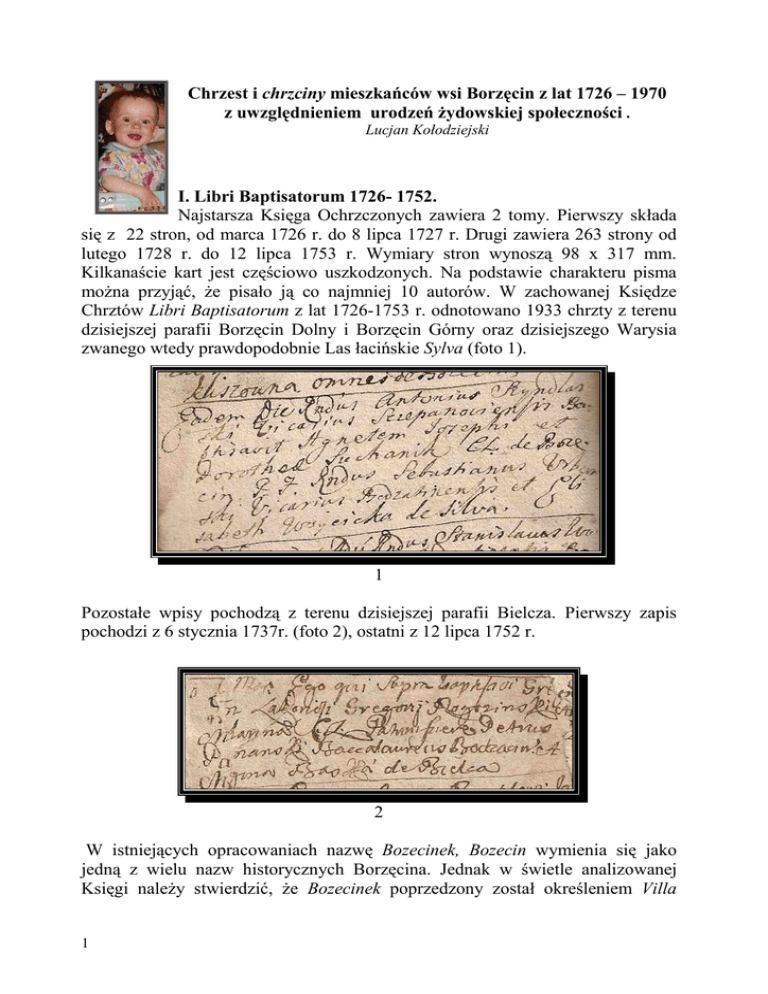 Chrzest i chrzciny mieszkańców wsi Borzęcin z lat 1726 – 1970
z uwzględnieniem urodzeń żydowskiej społeczności .
Lucjan Kołodziejski
I. Libri Baptisatorum 1726- 1752.
Najstarsza Księga Ochrzczonych zawiera 2 tomy. Pierwszy składa
się z 22 stron, od marca 1726 r. do 8 lipca 1727 r. Drugi zawiera 263 strony od
lutego 1728 r. do 12 lipca 1753 r. Wymiary stron wynoszą 98 x 317 mm.
Kilkanaście kart jest częściowo uszkodzonych. Na podstawie charakteru pisma
można przyjąć, że pisało ją co najmniej 10 autorów. W zachowanej Księdze
Chrztów Libri Baptisatorum z lat 1726-1753 r. odnotowano 1933 chrzty z terenu
dzisiejszej parafii Borzęcin Dolny i Borzęcin Górny oraz dzisiejszego Warysia
zwanego wtedy prawdopodobnie Las łacińskie Sylva (foto 1).
omnes de
Eadem Die Rndus Antonius
Vicarius
Agnetem Josephi et
Dorothea Suchanik CL. de Borze
cin. P. J. Rndus Sebastianus
Vicarius et Eli
sabeth Woycicka de Silva.
Rndus Stanislaus
1
Pozostałe wpisy pochodzą z terenu dzisiejszej parafii Bielcza. Pierwszy zapis
pochodzi z 6 stycznia 1737r. (foto 2), ostatni z 12 lipca 1752 r.
Ego qui Supra
Gregorij
CL. Petrus
Baccalaureus
de Bielca
2
W istniejących opracowaniach nazwę Bozecinek, Bozecin wymienia się jako
jedną z wielu nazw historycznych Borzęcina. Jednak w świetle analizowanej
Księgi należy stwierdzić, że Bozecinek poprzedzony został określeniem Villa
1